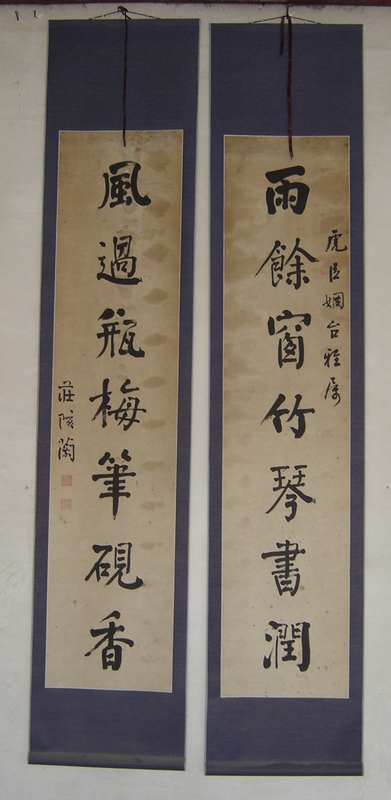 雨餘窗竹琴書潤
虎臣姻台雅属
風過瓶梅筆硯香
莊陔蘭